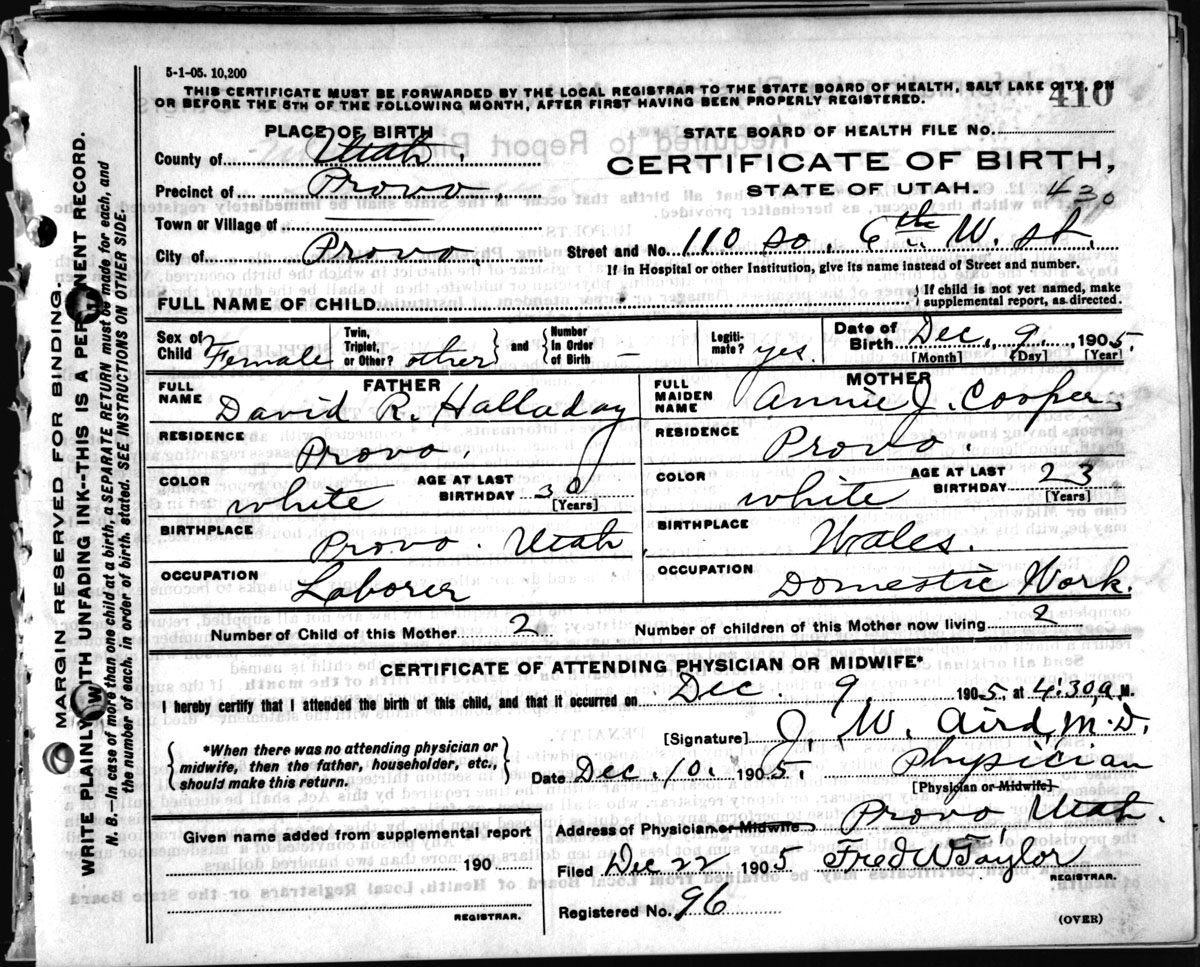 5-1-05. 10,200
THIS CERTIFICATE MUST BE FORWARDED BY THE LOCAL REGISTRAR TO THE STATE BOARD OF HEALTH, SALT LAKE CITY, ON
OR BEFORE THE 5TH OF THE FOLLOWING MONTH, AFTER FIRST HAVING BEEN PROPERLY REGISTERED.
410
PLACE OF BIRTH
STATE BOARD OF HEALTH FILE No.
County of Utah.
CERTIFICATE OF BIRTH,
Precinct of Provo,
STATE OF UTAH. 430
Town or Village of
City of Provo. Street and No. 110 so. 6th W. st.
If in Hospital or other Institution, give its name instead of Street and number.
FULL NAME OF CHILD { If child is not yet named, make
supplemental report, as directed.
Sex of Child Female Twin, Triplet, or Other? other } and { Number in Order of Birth – Legitimate? yes. Date of Birth Dec, 9, 1905.
[Month] [Day] [Year]
FATHER MOTHER
FULL NAME David R. Halladay FULL MAIDEN NAME Annie J. Cooper,
RESIDENCE Provo. RESIDENCE Provo.
COLOR white AGE AT LAST BIRTHDAY 30 [Years] COLOR white AGE AT LAST BIRTHDAY 23 [Years]
BIRTHPLACE Provo. Utah. BIRTHPLACE Wales.
OCCUPATION Laborer OCCUPATION Domestic Work.
Number of Child of this Mother 2 Number of children of this Mother now living 2
CERTIFICATE OF ATTENDING PHYSICIAN OR MIDWIFE*
I hereby certify that I attended the birth of this child, and that it occurred on Dec. 9 1905, at 4:30, a M.
{ *When there was no attending physician or
midwife, then the father, householder, etc.,
should make this return. }
[Signature] J. W. Aird, M.D.
Date Dec. 10. 1905. Physician
[Physician or Midwife]
Given name added from supplemental report
190
REGISTRAR.
Address of Physician or Midwife Provo, Utah.
Filed Dec 22 1905 Fred W Taylor,
REGISTRAR.
Registered No. 96
(OVER)
MARGIN RESERVED FOR BINDING.
WRITE PLAINLY WITH UNFADING INK--THIS IS A PERMANENT RECORD.
N. B.--In case of more than one child at a birth, a SEPARATE RETURN must be made for each, and
the number of each, in order of birth, stated. SEE INSTRUCTIONS ON OTHER SIDE.